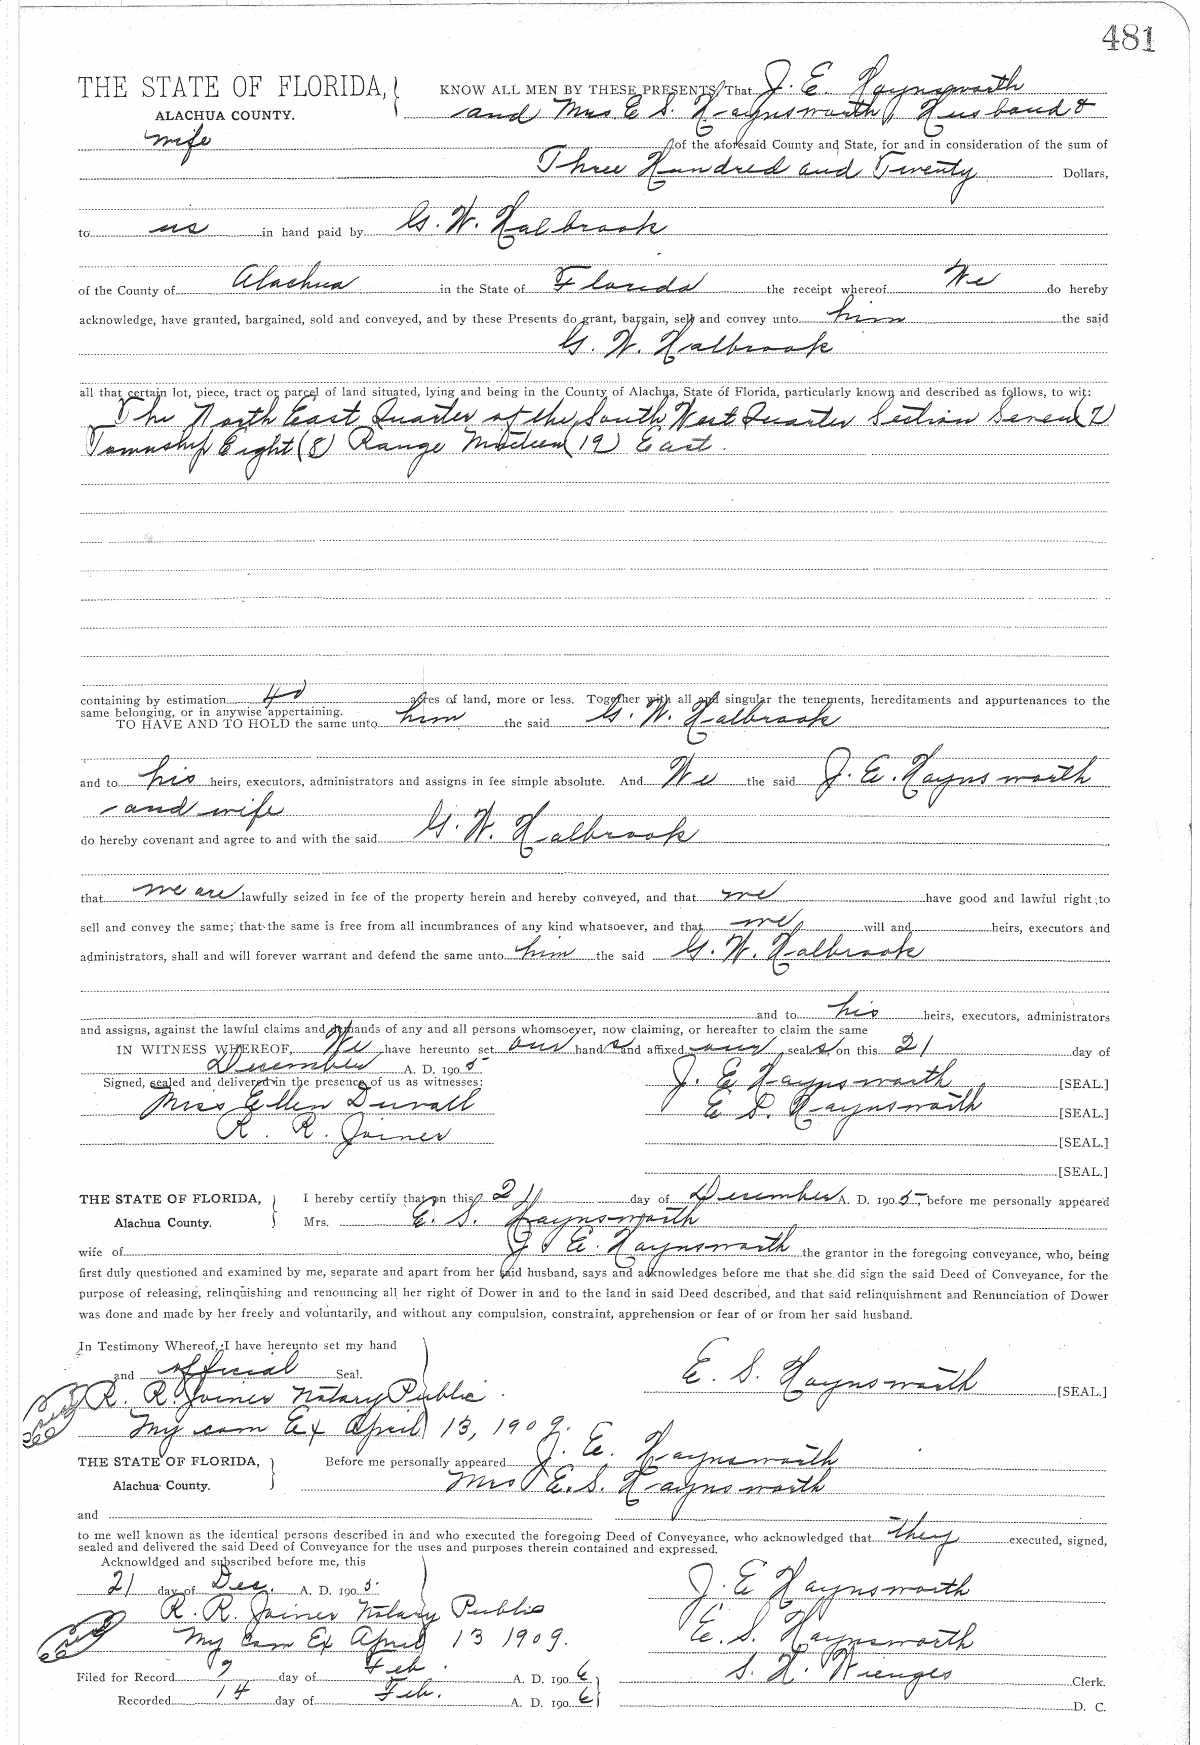 481
THE STATE OF FLORIDA, KNOW ALL MEN BY THESE PRESENTS, That J. E. Haynsworth
ALACHUA COUNTY. and Mrs E S. Haynsworth, Husband &
wife of the aforesaid County and State, for and in consideration of the sum of
Three Hundred and Twenty Dollars,
to us in hand paid by G. W. Halbrook
of the County of Alachua in the State of Florida the receipt whereof We do hereby
acknowledge, have granted, bargained, sold and conveyed, and by these Presents do grant, bargain, sell and convey unto him the said
G. W. Halbrook
all that certain lot, piece, tract or parcel of land situated, lying and being in the County of Alachua, State of Florida, particularly known and described as follows, to wit:
The North East Quarter of the South West Quarter Section Seven (7)
Township Eight (8) Range Nineteen (19) East.
containing by estimation 40 acres of land, more or less. Together with all and singular the tenements, hereditaments and appurtenances to the
same belonging, or in anywise appertaining.
TO HAVE AND TO HOLD the same unto him the said G. W. Halbrook
and to his heirs, executors, administrators and assigns in fee simple absolute. And We the said J. E. Haynsworth
and wife
do hereby covenant and agree to and with the said G. W. Halbrook
that we are lawfully seized in fee of the property herein and hereby conveyed, and that we have good and lawful right to
sell and convey the same; that the same is free from all incumbrances of any kind whatsoever, and that we will and heirs, executors and
administrators, shall and will forever warrant and defend the same unto him the said G. W. Halbrook
and to his heirs, executors, administrators
and assigns, against the lawful claims and demands of any and all persons whomsoever, now claiming, or hereafter to claim the same
IN WITNESS WHEREOF, We have hereunto set our hands and affixed our seals on this 21 day of
December A. D. 1905
Signed, sealed and delivered in the presence of us as witnesses: J. E Haynsworth [SEAL.]
Mrs Ellen Duvall E S. Haynsworth [SEAL.]
R. R. Joiner [SEAL.]
[SEAL.]
THE STATE OF FLORIDA, I hereby certify that on this 21 day of December A. D. 1905, before me personally appeared
Alachua County. Mrs. E. S. Haynsworth
wife of J. E. Haynsworth the grantor in the foregoing conveyance, who, being
first duly questioned and examined by me, separate and apart from her said husband, says and acknowledges before me that she did sign the said Deed of Conveyance, for the
purpose of releasing, relinquishing and renouncing all her right of Dower in and to the land in said Deed described, and that said relinquishment and Renunciation of Dower
was done and made by her freely and voluntarily, and without any compulsion, constraint, apprehension or fear of or from her said husband.
In Testimony Whereof, I have hereunto set my hand
and official Seal. E. S. Haynsworth [SEAL.]
R. R. Joiner Notary Public
My com Ex April 13, 1909.
THE STATE OF FLORIDA, Before me personally appeared J. E. Haynsworth
Alachua County. Mrs E. S. Haynsworth
and
to me well known as the identical persons described in and who executed the foregoing Deed of Conveyance, who acknowledged that they executed, signed,
sealed and delivered the said Deed of Conveyance for the uses and purposes therein contained and expressed.
Acknowldged and subscribed before me, this
21 day of Dec. A. D. 1905 J. E Haynsworth
R. R. Joiner Notary Public
My Com Ex April 13 1909. E. S. Haynsworth
Filed for Record 9 day of Feb. A. D. 1906 S. H. Wienges Clerk.
Recorded 14 day of Feb. A. D. 1906 D. C.